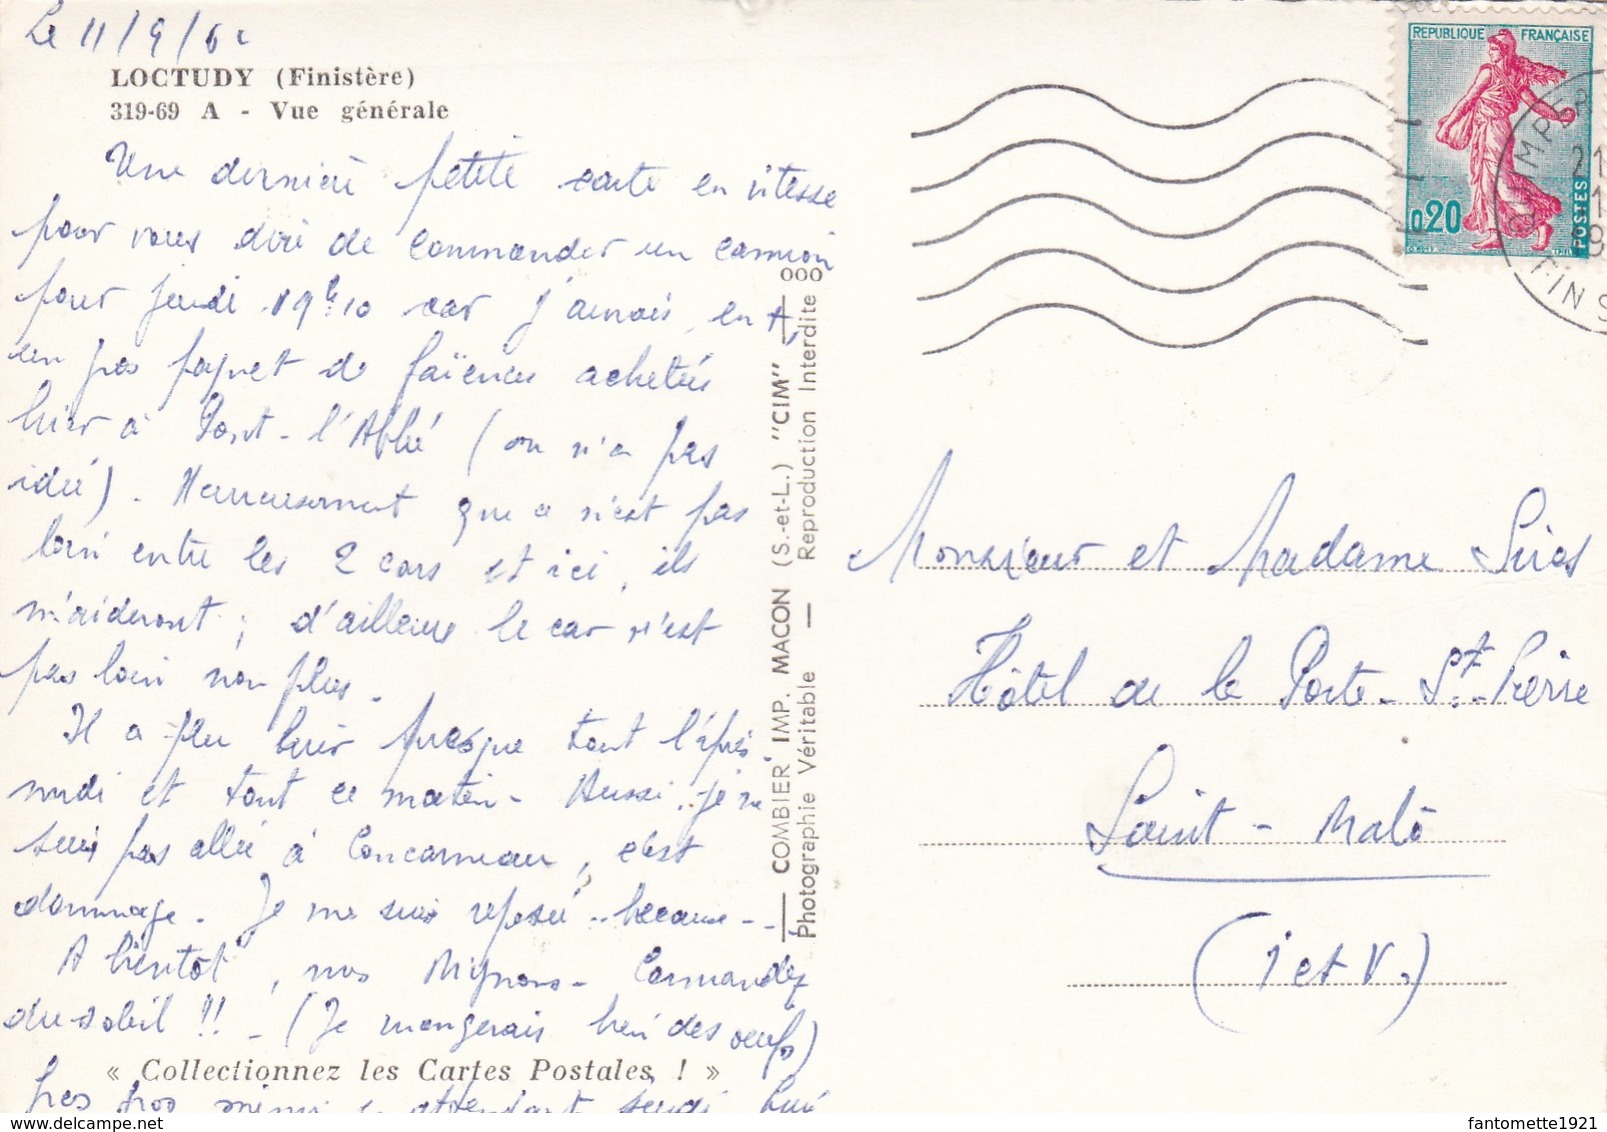 Le 11/9/62
LOCTUDY (Finistère)
319-69 A - Vue générale
Une dernière petite carte en vitesse
pour vous dire de commander un camion
pour jeudi 19h10 car j'aurais, en +,
un gros paquet de faïences achetées
hier à Pont-l'Abbé (on n'a pas
idée). Heureusement que ce n'est pas
loin entre les 2 cars et ici, ils
m'aideront; d'ailleurs le car n'est
pas loin non plus.
Il a plu hier presque tout l'après-
midi et tout ce matin - Aussi, je ne
suis pas allée à Concarneau, c'est
dommage. Je me suis reposée.. because--
A bientôt, mes Mignons - Commandez
du soleil !! - (Je mangerais bien des oeufs)
« Collectionnez les Cartes Postales ! »
en attendant jeudi
COMBIER IMP. MACON (S.-et-L.) "CIM"
Photographie Véritable — Reproduction Interdite
REPUBLIQUE FRANÇAISE
0,20
POSTES
QUIMPER
21
FINIS
Monsieur et Madame
Hôtel de la Porte - St-Pierre
Saint-Malo
(I et V.)
fantomette1921